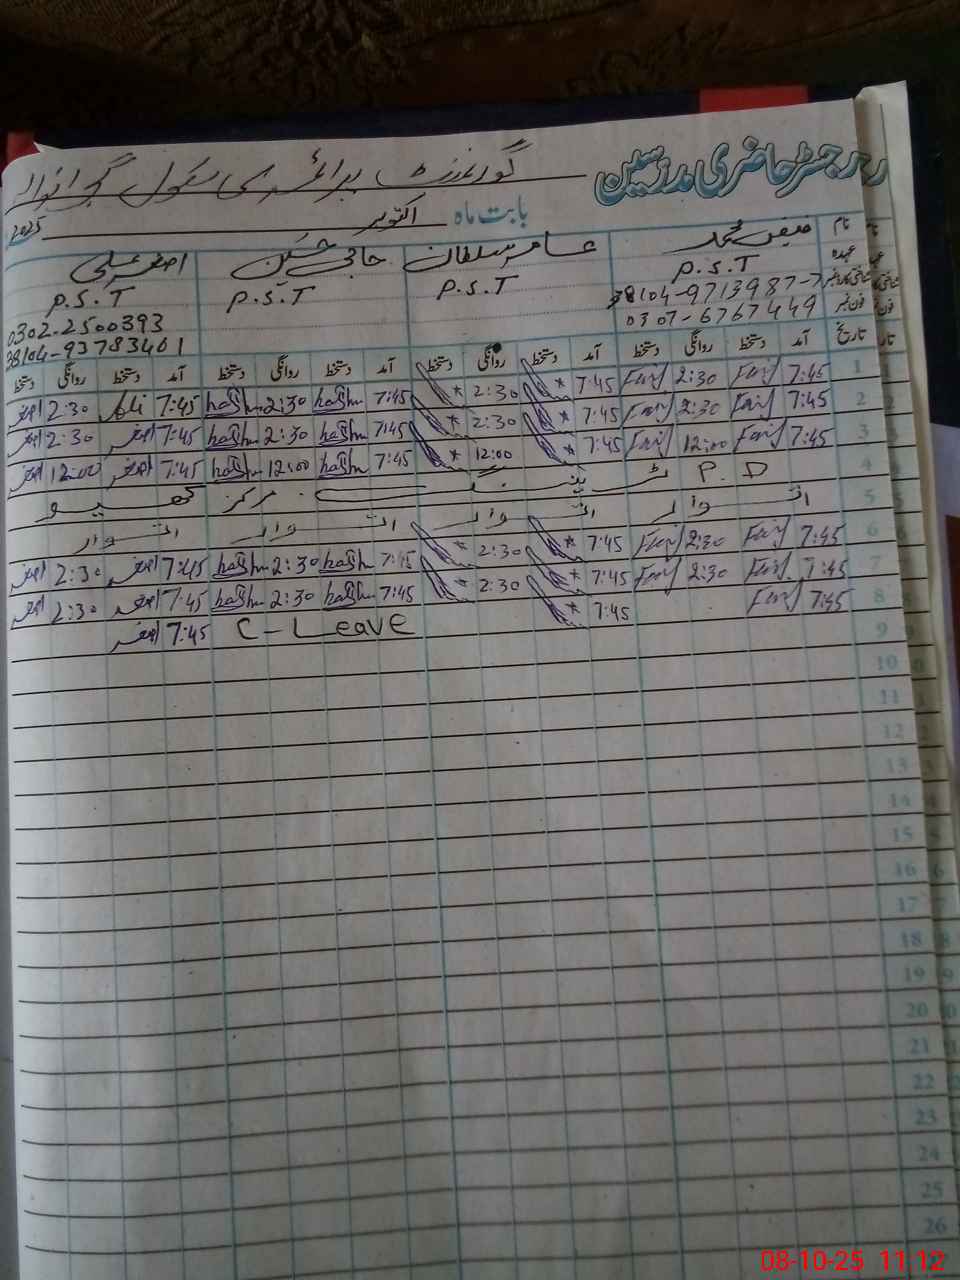 رجسٹر حاضری مدرسین گورنمنٹ پرائمری سکول
بابت ماہ اکتوبر 2025
نام فیض محمد عامر سلطان حاجی اصغر علی
عہدہ P.S.T P.S.T P.S.T P.S.T
38104-9713987-7 0302-2500393
فون نمبر 0307-6767449 38104-93783401
تاریخ آمد دستخط روانگی دستخط آمد دستخط روانگی دستخط آمد دستخط روانگی دستخط آمد دستخط روانگی دستخط
1 7:45 Faiz 2:30 Faiz 7:45 2:30 7:45 hashm 2:30 hashm 7:45 Ali 2:30 اصغر
2 7:45 Faiz 2:30 Faiz 7:45 2:30 7:45 hashm 2:30 hashm 7:45 اصغر 2:30 اصغر
3 7:45 Faiz 12:00 Faiz 7:45 12:00 7:45 hashm 12:00 hashm 7:45 اصغر 12:00 اصغر
4 P.D ٹریننگ مرکز
5 اتوار اتوار اتوار اتوار
6 7:45 Faiz 2:30 Faiz 7:45 2:30 7:45 hashm 2:30 hashm 7:45 اصغر 2:30 اصغر
7 7:45 Faiz 2:30 Faiz 7:45 2:30 7:45 hashm 2:30 hashm 7:45 اصغر 2:30 اصغر
8 7:45 Faiz 7:45 C-Leave 7:45 اصغر
9
10
11
12
13
14
15
16
17
18
19
20
21
22
23
24
25
26
08-10-25 11:12